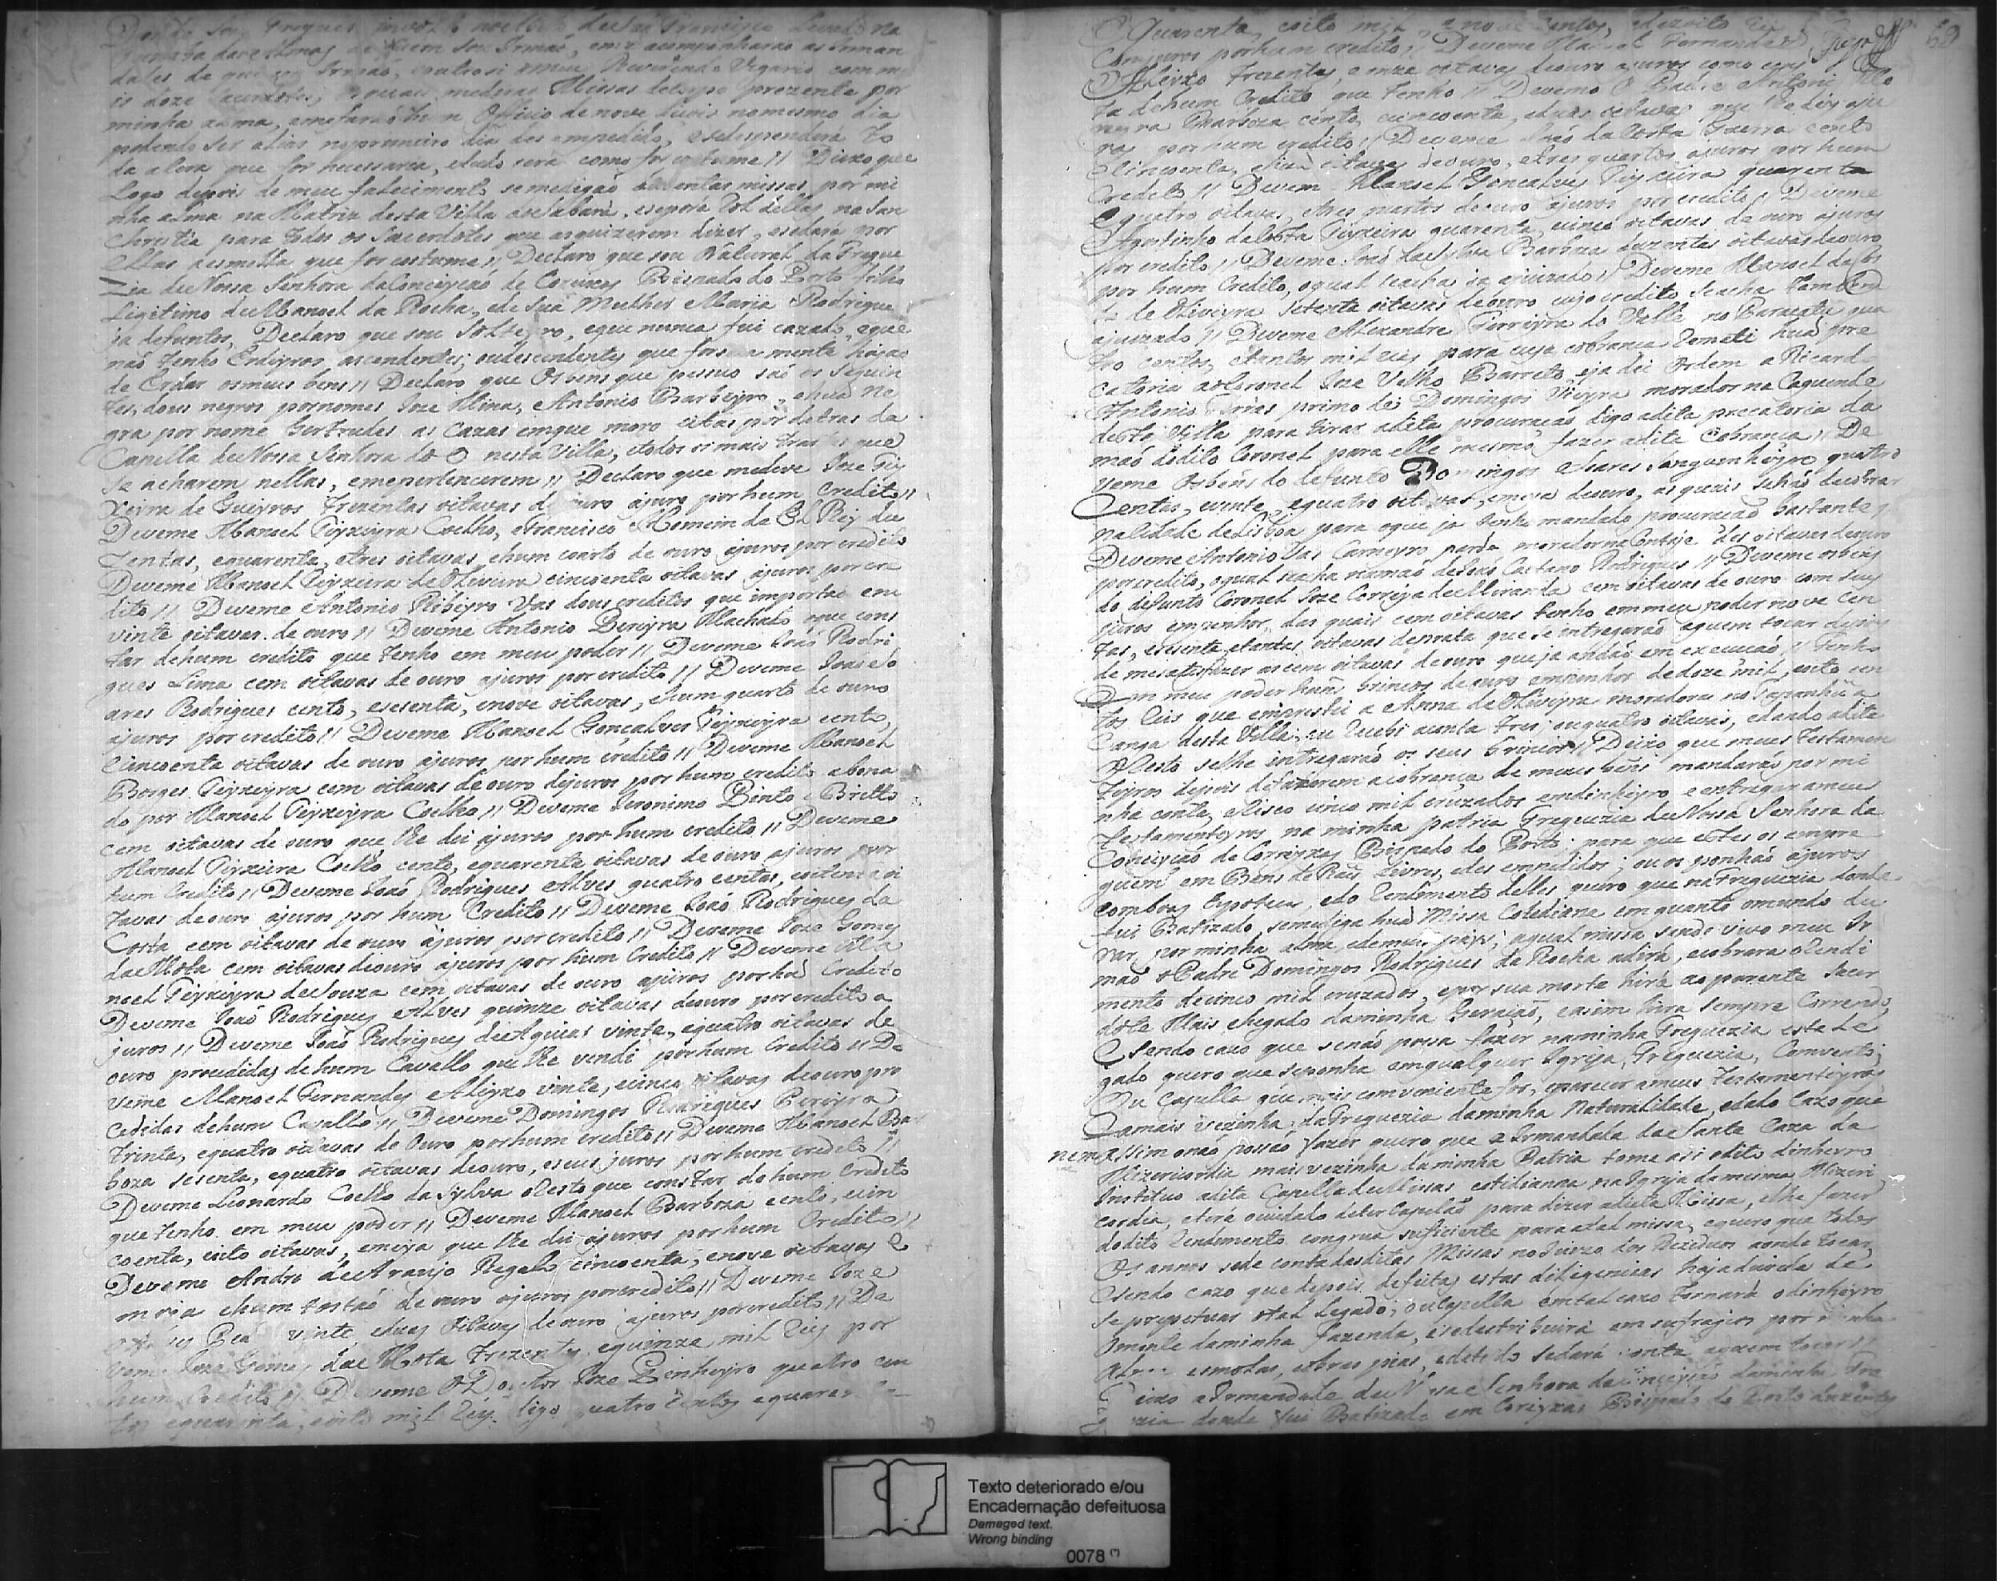 dales de que sou Irmaõ, outrosi o meu Reverendo Vigario com m
is doze Sacerdotes, os quaes medirao Missas de corpo prezente por
minha alma, e mefaraõ hum Officio de nove liçois nomesmo dia
podendo ser, alias noprimeiro dia des empedido, esedespendera To
da a Cera que for necessaria, etudo será como for costume // Deixo que
Logo depois de meu falecimento se medigaõ duzentas missas por mi
nha alma na Matriz desta Villa do Sabará, eseporá Rol dellas na San
christia para todos os Sacerdotes que as quizerem dizer, esedará por
ellas aesmolla que for costume // Declaro que sou Natural da Fregue
Zia de Nossa Senhora da Conceiçaõ de Bispado do Porto filho
Ligitimo de Manoel da Rocha, e de Sua Mulher Maria Rodrigue
ja defuntos, Declaro que sou Solteyro, eque nunca fui cazado, eque
naõ tenho Erdeyros ascendentes, oudescendentes que forsozamente hajaõ
de Erdar osmeus bens // Declaro que Osbens que possuo saõ os Seguin
tes, dous negros pornomes Joze Mina, e Antonio Barbeyro, ehuã Ne
gra por nome Gertrudes as Cazas emque moro citas por detras da
Capella de Nossa Senhora do O nesta Villa, etodos osmais trastes que
Se acharem nellas, emepertencerem // Declaro que medeve Joze Tey
xeyra de Queyros Trezentas oitavas de ouro ajuro por hum Credito //
Deveme Manoel Teyxeyra Coelho, e Francisco Homem del Rey du
Zentas, equarenta, etres oitavas, ehum coarto de ouro ajuros por credito
Deveme Manoel Teyxeira de Oliveira cincoenta oitavas ajuros por cre
dito // Deveme Antonio Ribeyro Vas dous creditos que importaõ em
vinte oitavas de ouro // Deveme Antonio Pereyra Machado oque cons
tar dehum credito que tenho em meu poder // Deveme Joaõ Rodri
gues Lima cem oitavas de ouro ajuros por credito // Deveme
ares Rodrigues cento, esesenta, enove oitavas, ehum quarto de ouro
ajuros por credito // Deveme Manoel Gonçalves Teyxeyra cento,
Cincoenta oitavas de ouro ajuros por hum credito // Deveme Manoel
Borges Teyxeyra cem oitavas de ouro dejuros por hum credito abona
do por Manoel Teyxeyra Coelho // Deveme Jeronimo Pinto e Britto
cem oitavas de ouro que lhe dei ajuros por hum credito // Deveme
Manoel Teyxeira Coelho cento, equarenta oitavas de ouro ajuros por
hum Credito // Deveme Joaõ Rodrigues Alves quatro centas, eoitenta oi
tavas de ouro ajuros por hum Credito // Deveme Joaõ Rodrigues da
Costa cem oitavas de ouro ajuros por credito // Deveme Joze Gomes
da Mota cem oitavas deouro ajuros por hum Credito // Deveme Ma
noel Teyxeyra de Souza cem oitavas de ouro ajuros por hũ Credito
Deveme Joaõ Rodrigues Alves quinze oitavas deouro por credito a
juros // Deveme Joaõ Rodrigues de Aguiar vinte, equatro oitavas de
ouro procedidas dehum Cavallo que lhe vendi por hum Credito // De
veme Manoel Fernandes Aleyxo vinte, ecinco oitavas deouro pro
cedidas dehum Cavallo // Deveme Domingos Rodrigues Pereyra
trinta, equatro oitavas de Ouro por hum credito // Deveme Manoel Bar
boza sesenta, equatro oitavas deouro, eseus juros por hum credito //
Deveme Leonardo Coelho da Sylva oResto que constar dehum Credito
que tenho em meu poder // Deveme Manoel Barboza cento, ecin
coenta, eoito oitavas, emeya que lhe dei ajuros por hum Credito //
Deveme Andre de Araujo Regalo cincoenta, enove oitavas e
meya ehum tostaõ de ouro ajuros por credito // Deveme Joze
vinte, eduas oitavas de ouro ajuros por credito // De
veme Joze Gomes da Mota Trezentos, equinze mil Reis por
hum Credito // Deveme O Doctor Joze Pinheyro quatro cen
tos equarenta, eoito mil Reis, digo quatro centos equaren
Quarenta, eoito mil, e nove centos, edezoito Reis
Comjuros porhum credito // Deveme Manoel Fernandes
Aleixo trezentas, e onze oitavas deouro ajuros como cons
ta dehum Credito que tenho // Deveme O Padre Antonio
Barboza cento, ecincoenta, eduas oitavas que lhe dei aju
ros por hum credito // Deveme da Costa Guerra cento
Cincoenta, oitavas deouro, etres quartos ajuros por hum
Credito // Deveme Manoel Gonçalves Teyxeira quarenta
equatro oitavas, etres quartos deouro ajuros por credito // Deveme
Agostinho da Costa Teyxeira quarenta, ecinco oitavas de ouro ajuros
por credito // Deveme Joaõ da Sylva Barboza duzentas oitavas deouro
por hum Credito, oqual seacha ja ajuizado // Deveme Manoel
de Oliveyra Setenta oitavas deouro cujo credito seacha tambem
ajuizado // Deveme Alexandre Ferreyra do Valle no Paracatu qua
tro centos, etantos mil reis para cuja cobrança Remeti huã pre
catoria aoCoronel Joze Velho Barreto eja dei ordem a Ricard
Antonio Farias primo de Domingos Vieyra morador na Caquende
desta Villa para tirar adita procuraçaõ digo adita precatoria da
maõ dodito Coronel para elle mesmo fazer adita Cobrança // De
veme Osbens do defunto Domingos Soares Sanguenheyro quatro
Centas, evinte, equatro oitavas, emeya deouro, as quais sehaõ decobrar
naCidade de Lisboa para oque ja tenho mandado procuraçaõ bastante //
Deveme Antonio Vas Carneyro pardo morador no dés oitavas deouro
por credito, oqual seacha namaõ de Joaõ Caetano Rodrigues // Deveme osbens
do defunto Coronel Joze Correya de Miranda cem oitavas de ouro com seus
juros empenhor, das quais cem oitavas tenho em meu poder nove cen
tas, esesenta, etantas oitavas deprata que se entregaraõ aquem tocar depois
de mesatisfazer ascem oitavas deouro queja andaõ em execuçaõ // Tenho
Em meu poder huns brincos de ouro empenhor dedoze mil, eoito cen
tos Reis que emprestei a Anna de Oliveyra moradora no Tapanhũa
Canga desta Villa; eu Recebi aconta tres, ouquatro oitavas, edando adita
oResto selhe intregaraõ os seus brincos // Deixo que meus Testamen
teyros depois defazerem acobrança de meus bens mandaraõ por mi
nha conta, eRisco cinco mil cruzados emdinheyro e entregar ameus
Testamenteyros na minha patria Freguezia de Nossa Senhora da
Conceiçaõ de Bispado do Porto; para que estes os empre
guem em Bens de Rais Livres, edes empedidos; ou os ponhaõ ajuros
comboas Epotecas, edo Rendimento delles quero que na Freguezia donde
fui Batizado, semediga huã Missa Cotediana emquanto omundo du
rar, por minha alma, edemeus pays; aqual missa sendo vivo meu Ir
maõ oPadre Domingos Rodrigues da Rocha adirá, ecobrara oRendi
mento decinco mil cruzados, epor sua morte hirá ao parente Sacer
dote Mais chegado daminha Geraçaõ, easim hira sempre Correndo,
eSendo cazo que senaõ possa fazer naminha Freguezia este Le
gado quero que seponha emqualquer Igreja, Freguezia, Comvento,
Ou Capella que mais comveniente for, eparecer ameus Testamenteyros
eamais vezinha daFreguezia daminha Naturalidade, edado Cazo que
nem assim onaõ possaõ fazer quero que a Irmandade da Santa Caza da
Mizericordia mais vezinha daminha Patria tome asi odito dinheyro
Institua adita Capella de Missas cotidianas na Igreja damesma Mizeri
cordia, eterá ocuidado deter Capelaõ para dizer adita Missa, elhe fazer
dodito Rendimento congrua suficiente para atal missa, equero que todos
Os annos sede conta das ditas Missas no Juizo dos Reziduos aonde tocar
eSendo cazo que depois defeitas estas diligencias haja duvida de
Se perpetuar otal Legado, ouCapella emtal cazo Tornará odinheyro
omonte daminha fazenda, esedestribuirá em sufragios por minha
Alma esmolas, eobras pias, edetudo sedará conta aquem tocar //
Deixo a Irmandade de Nossa Senhora da Conceiçaõ daminha Fre
guezia donde fui Batizado em Bispado do Porto duzentos
Texto deteriorado e/ou
Encadernação defeituosa
Damaged text.
Wrong binding
0078